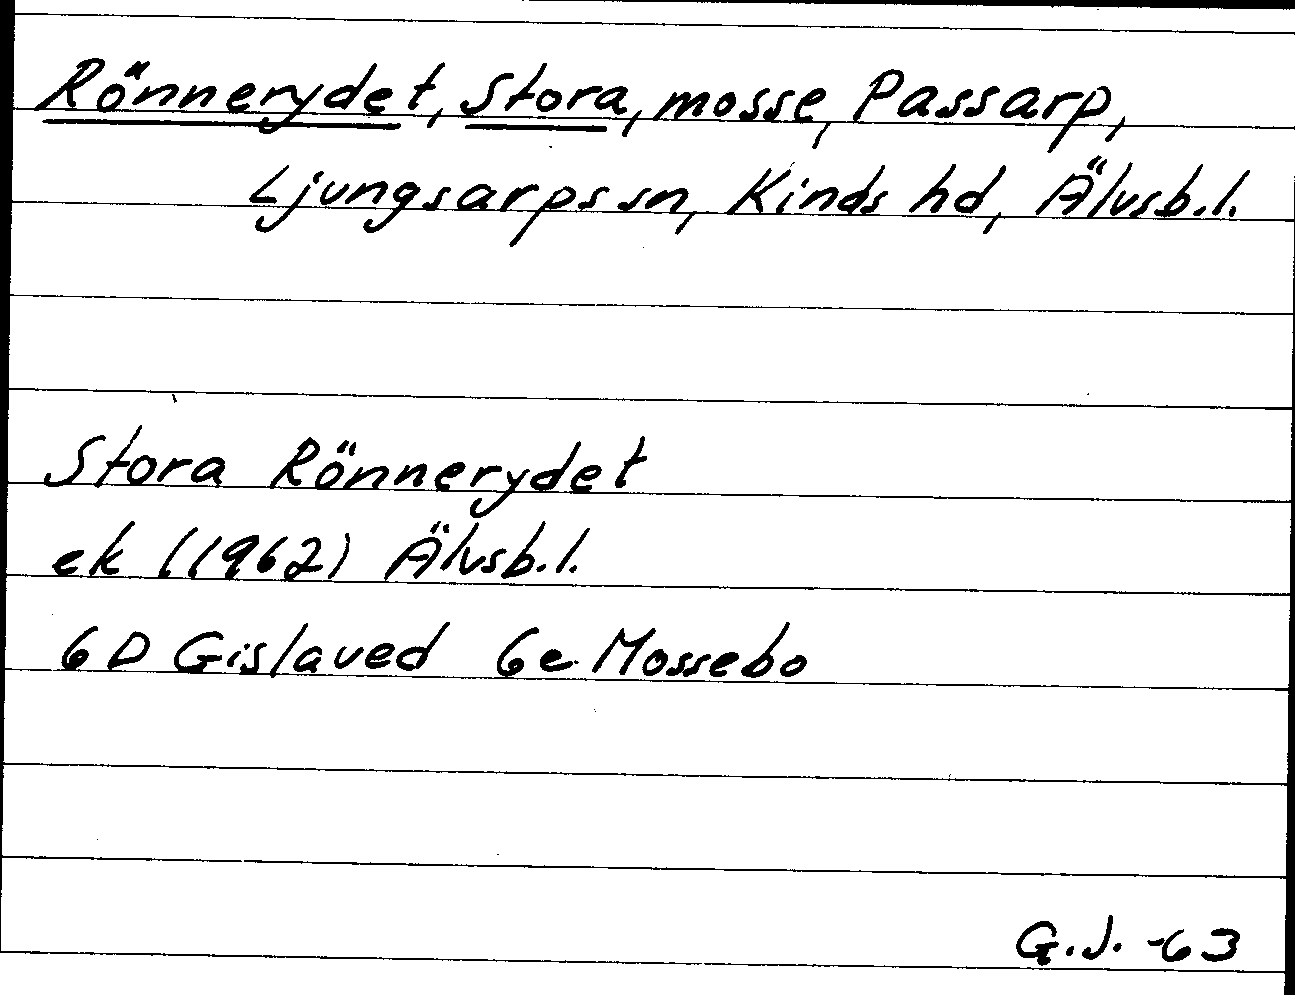 Rönnerydet, Stora, mosse, Passarp,
Ljungsarps sn, Kinds hd, Älvsb.l.
Stora Rönnerydet
ek (1962) Älvsb.l.
6D Gislaved 6e Mossebo
G.J. -63